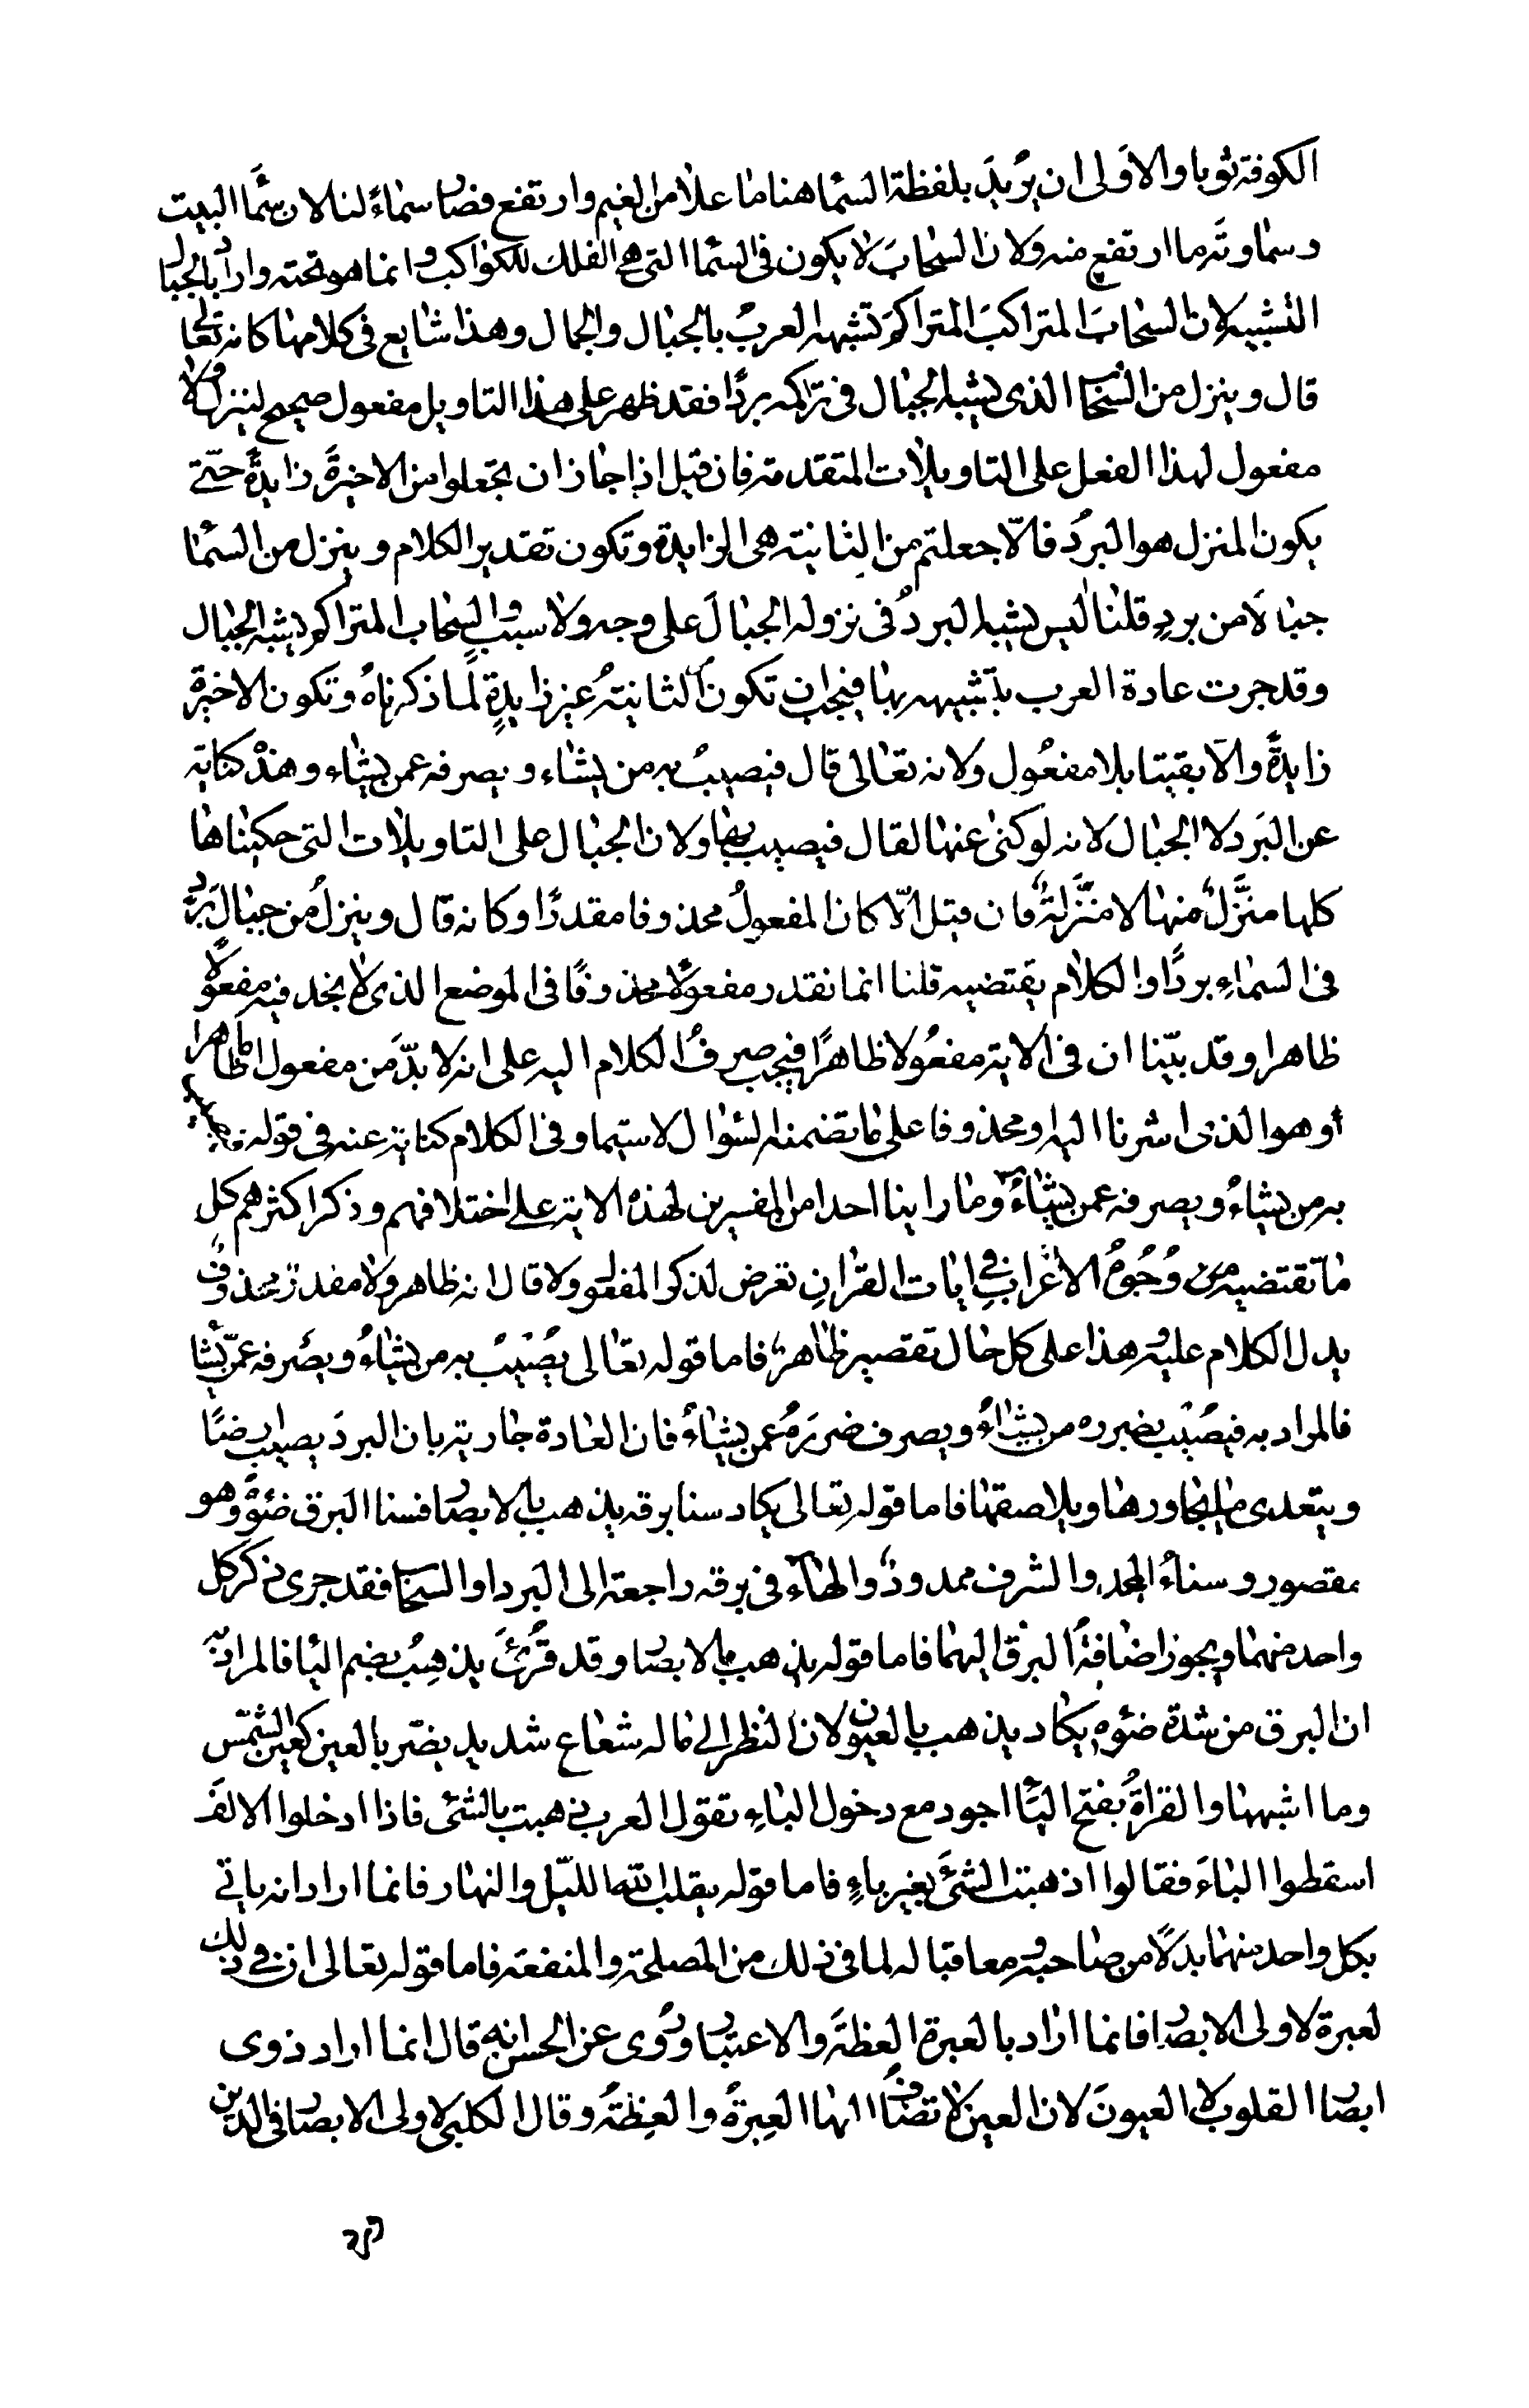 الكوفة ثوبا والاولى ان يريد بلفظة السما هنا ما علا من الغيم وارتفع فصار سماء لنا لان سَما البيت
وسماوته ما ارتفع منه ولان السحابَ لا يكون في السما التي هي الفلك للكواكب وانما هو تحته واراد بالجبال
التشبيه لان السحابَ المتراكبَ المتراكم تشبهه العربُ بالجبال والجمال وهذا شايع في كلامها كانه تعالى
قال وينزل من السحاب الذي يشبه الجبال في تراكمه بردًا فقد ظهر على هذا التاويل مفعول صحيح لينزل ولا
مفعول لهذا الفعل على التاويلات المتقدمة فان قيل اذا جاز ان تجعلوا من الاخيرةَ زايدةً حتى
يكون المنزل هو البردُ فالّا جعلتم من الثانية هي الزايدة وتكون تقدير الكلام وينزل من السمَا
جبالًا من بردٍ قلنا ليس يشبه البردُ في نزوله الجبالَ على وجه ولا سبب والسحاب المتراكم يشبه الجبال
وقد جرت عادة العرب بتشبيهه بها فيجب ان تكون الثانيةُ غير زايدةٍ لما ذكرناهُ وتكون الاخيرة
زايدةً والا بقينا بلا مفعُول ولانه تعالى قال فيصيبُ به من يشاء ويصرفه عمن يشاء وهذه كناية
عن البَرد لا الجبال لانه لو كنى عنها لقال فيصيب بها ولان الجبال على التاويلات التي حكيناها
كلها منزَّلٌ منها لا منزَّلةٌ فان قيل الّا كان المفعولُ محذوفا مقدرًا وكانه قال وينزلُ من جبال بَردٍ
في السماءِ بردًا والكلام يقتضيه قلنا انما نقدر مفعولًا محذوفًا في الموضع الذي لا نجد فيه مفعولًا
ظاهرا وقد بيّنا ان في الاية مفعُولا ظاهرًا فيجب صرفُ الكلام اليه على انه لا بدَّ من مفعول اما ظاهرا
أو هو الذي اشرنا اليه او محذوفا على ما تضمنه السُوال لا سيما وفي الكلام كناية عنه في قوله فيصيب
به من يشاءُ ويصرفه عمن يشاءُ وما راينا احدا من المفسرين لهذه الاية على اختلافهم وذكر اكثرهم كل
ما تقتضيه من وُجُوهُ الاعراب في ايات القرانِ تعرض لذكر المفعول ولا قال انه ظاهر ولا مقدرٌ محذوفٌ
يدل الكلام عليه وهذا على كل حال تقصير ظاهرٌ فاما قوله تعالى يُصيبُ به من يشاءُ ويصَرفه عمّن يشا
فالمراد به فيصُيبُ بضرره من يشاءُ ويصرف ضررَهُ عمن يشاءُ فان العادة جارية بان البردَ يصيب ارضًا
ويتعدى ما يجاورها ويلاصقها فاما قوله تعالى يكاد سنا برقه يذهب بالابصار فسنا البرق ضوؤه وهو
مقصور وسناءُ المجد والشرف ممدودٌ والهاء في برقه راجعة الى البرد او السحاب فقد جرى ذكر كل
واحد منهما ويجوز اضافةُ البرق اليهما فاما قوله يذهب بالابصار وقد قُرئَ يذهِبُ بضم اليا فالمراد به
ان البرق من شدة ضوئهِ يكاد يذهب بالعيون لان النظر الى ما له شعاع شديد يضرّ بالعين كعين الشمس
وما اشبهها والقراةُ بفتح اليَا اجود مع دخول الباءِ تقول العرب ذهبت بالشئ فاذا ادخلوا الالفَ
اسقطوا الباءَ فقالوا اذهبت الشئَ بغير باءٍ فاما قوله يقلب الله الليّل والنهار فانما اراد انه ياتى
بكل واحد منهما بدلًا من صاحبه ومعاقبا له لما في ذلك من المصلحة والمنفعة فاما قوله تعالى ان في ذلك
لعبرة لاولى الابصار فانما اراد بالعبرة العظةَ والاعتبار ورُوى عن الحسن انه قال انما اراد ذوى
ابصار القلوب لا العيون لان العين لا تضاف اليها العِبرةُ والعِظةُ وقال الكلبي لاولى الابصار في الدين